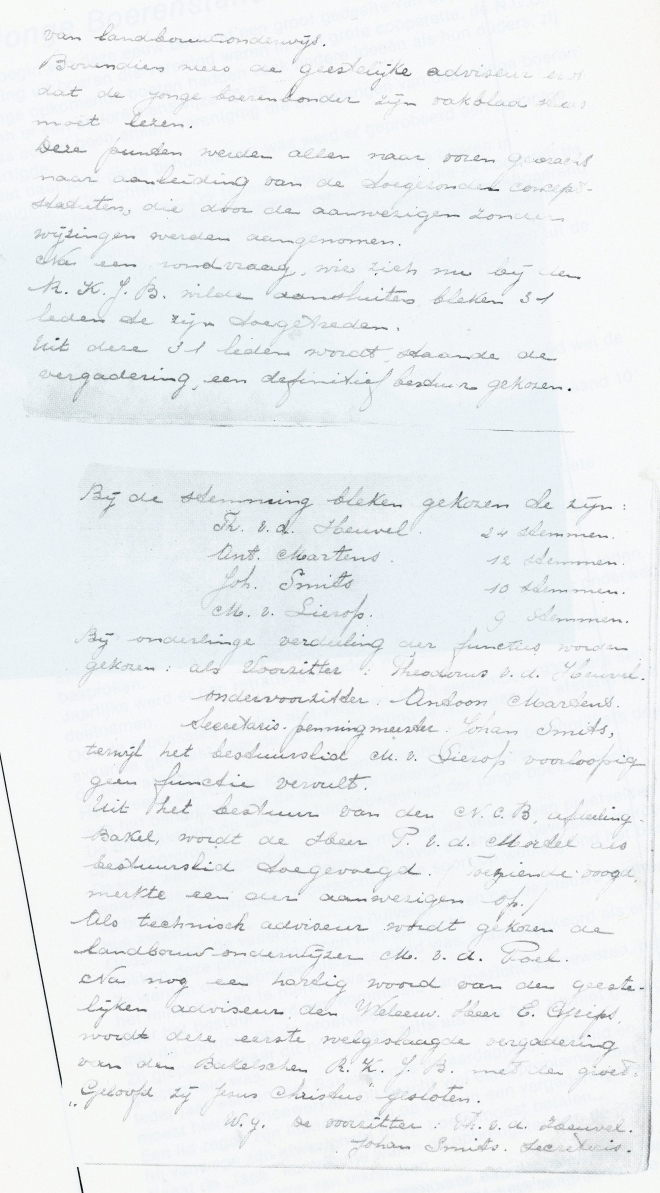 van landbouwonderwijs.
Bovendien wees de geestelijke adviseur erop
dat de jonge boerenbonder zijn vakblad
moet lezen.
Deze punten werden allen naar voren gebracht
naar aanleiding van de toegezonden concept-
statuten, die door de aanwezigen zonder
wijzigingen werden aangenomen.
Na een rondvraag, wie zich nu bij den
R. K. J. B. wilde aansluiten, bleken 31
leden te zijn toegetreden.
Uit deze 31 leden wordt, staande de
vergadering, een definitief bestuur gekozen.
Bij de stemming bleken gekozen te zijn:
Th. v. d. Heuvel. 24 stemmen.
Ant. Martens. 12 stemmen.
Joh. Smits 10 stemmen.
M. v. Lierop. 9 stemmen.
Bij onderlinge verdeeling der functies worden
gekozen: als Voorzitter: Theodorus v. d. Heuvel.
ondervoorzitter: Antoon Martens.
Secretaris-penningmeester: Johan Smits,
terwijl het bestuurslid M. v. Lierop voorloopig
geen functie vervult.
Uit het bestuur van den N. C. B. afdeeling-
Bakel, wordt de Heer P. v. d. Mortel als
bestuurslid toegevoegd. (Toeziende voogd,
merkte een der aanwezigen op.)
Als technisch adviseur wordt gekozen de
landbouw-onderwijzer M. v. d. Poel.
Na nog een hartig woord van den geeste-
lijken adviseur, den Weleerw. Heer E.
wordt deze eerste welgeslaagde vergadering
van den Bakelschen R. K. J. B. met den groet:
„Geloofd zij Jesus Christus" gesloten.
W. g. De voorzitter: Th. v. d. Heuvel.
Johan Smits. Secretaris.